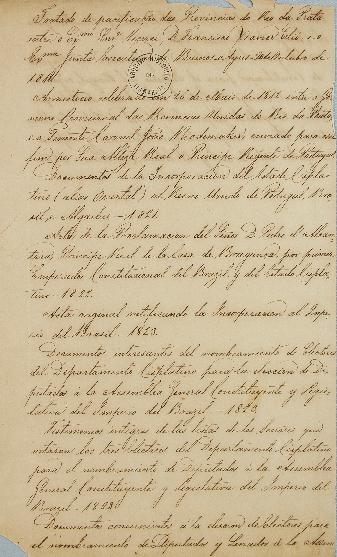 Tratado de pacificação das Provincias do Rio da Prata
entre o Exmo Snr. Virrei D. Francisco Xavier Elio, e a
Exma Junta executiva de Buenos Ayres 20 de Outubro de
1811.
Armisticio celebrado em 26 de Maio de 1812 entre o Go-
verno Provisional das Provincias Unidas do Rio da Prata,
e o Tenente Coronel João Rademaker, enviado para esse
fim, por Sua Alteza Real o Principe Regente de Portugal.
Documentos de la Incorporacion del Estado Cispla-
tino (alias Oriental) al Reino Unido de Portugal, Bra-
sil e Algarbes - 1821.
Acta de la Proclamacion del Señor D. Pedro d'Alcan-
tara, Principe Real de la Casa de Braganza, por primer
Emperador Constitucional del Brazil y del Estado Cispla-
tino - 1822.
Acta original ratificando la Incorporacion al Impe-
rio del Brasil - 1823.
Documento interesantes del nombramiento de Electores
del Departamento Cisplatino para la eleccion de Di-
putados á la Asamblea General Constituyente y Legis-
lativa del Imperio del Brazil - 1823.
Testimonios integros de las Actas de los
votaron los tres Electores del Departamento Cisplatino
para el nombramiento de Diputados á la Asamblea
General Constituyente y Legislativa del Imperio del
Brazil - 1823.
Documentos concernientes á la eleccion de Electores para
el nombramiento de Diputados y Senados de la Asam